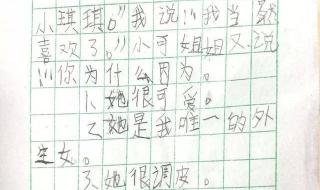 小琪琪。”我说:“我当然
喜欢了。”小可姐姐又说
:“你为什么因为。
1、她很可爱。
2、她是我唯一的外
生女。
3、她很调皮。